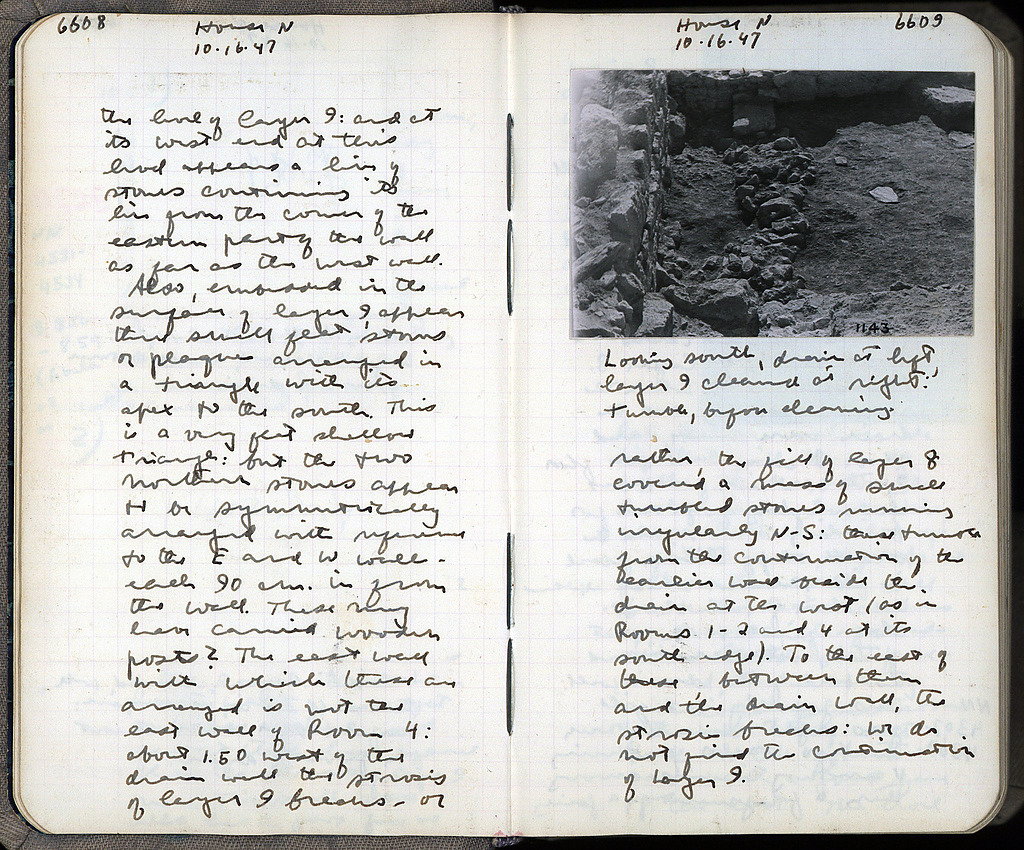 6608
House N
10.16.47
the level of layer 9: and at
its west end at this
level appears a line of
stones continuing its
line from the corner of the
eastern part of the wall
as far as the west wall.
Also, embedded in the
surface of layer 9 appear
three small flat stones
or plaques arranged in
a triangle with its
apex to the south. This
is a very flat shallow
triangle: but the two
northern stones appear
to be symmetrically
arranged with reference
to the E and W walls -
each 90 cm. in from
the wall. These may
have carried wooden
posts? The east wall
with which these are
arranged is not the
east wall of Room 4:
about 1.50 west of the
drain wall the strosis
of layer 9 breaks - or
House N
10.16.47
6609
1143
Looking south, drain at left,
layer 9 cleaned at right:
tumble, before cleaning.
rather, the fill of layer 8
covered a mass of small
tumbled stones running
irregularly N-S: these tumble
from the continuation of the
earlier wall beside the
drain at the west (as in
Rooms 1-2 and 4 at its
south edge). To the east of
these, between them
and the drain wall, the
strosis breaks: we do
not find the continuation
of layer 9.